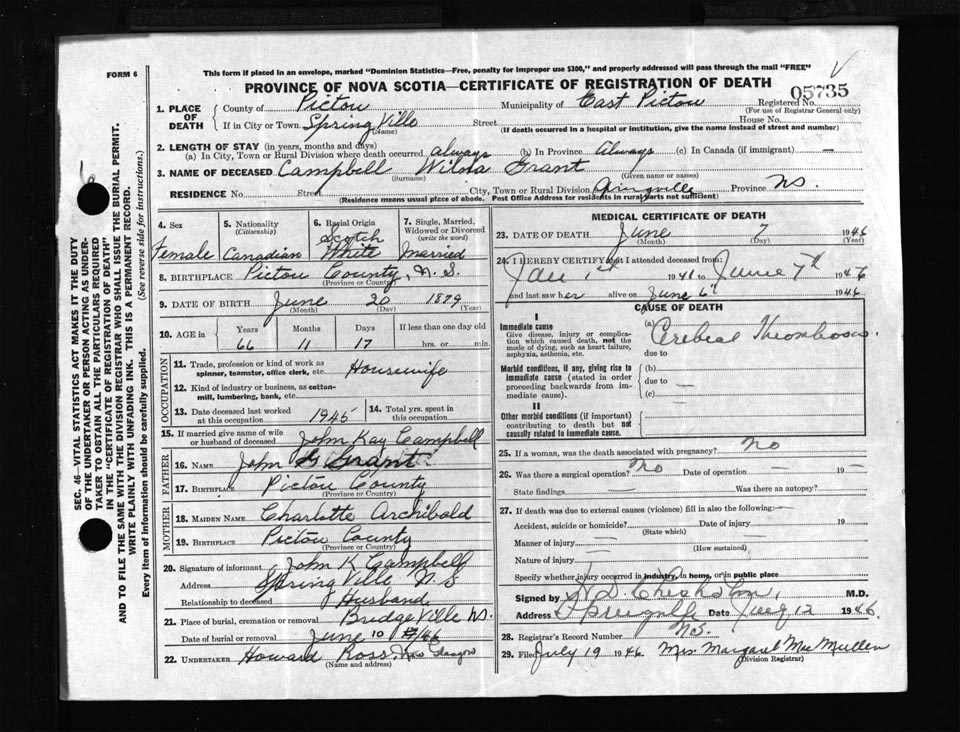 FORM 6
This form if placed in an envelope, marked "Dominion Statistics—Free, penalty for improper use $300," and properly addressed will pass through the mail "FREE"
PROVINCE OF NOVA SCOTIA—CERTIFICATE OF REGISTRATION OF DEATH
05735
1. PLACE OF DEATH
County of Pictou Municipality of East Pictou Registered No.
(For use of Registrar General only)
If in City or Town Spring Ville Street House No.
(Name) (If death occurred in a hospital or institution, give the name instead of street and number)
2. LENGTH OF STAY (in years, months and days)
(a) In City, Town or Rural Division where death occurred always (b) In Province Always (c) In Canada (if immigrant) —
3. NAME OF DECEASED Campbell Wilna Grant
(Surname) (Given name or names)
RESIDENCE No. Street City, Town or Rural Division Province NS.
(Residence means usual place of abode. Post Office Address for residents in rural parts not sufficient)
4. Sex
Female
5. Nationality
(Citizenship)
Canadian
6. Racial Origin
Scotch
White
7. Single, Married, Widowed or Divorced
(write the word)
Married
8. BIRTHPLACE Pictou County, N.S.
(Province or Country)
9. DATE OF BIRTH June 20 1879
(Month) (Day) (Year)
10. AGE in Years Months Days If less than one day old
66 11 17 hrs. or min.
OCCUPATION
11. Trade, profession or kind of work as spinner, teamster, office clerk, etc. Housewife
12. Kind of industry or business, as cotton-mill, lumbering, bank, etc.
13. Date deceased last worked at this occupation 1945
14. Total yrs. spent in this occupation
15. If married give name of wife or husband of deceased John Kay Campbell
FATHER
16. NAME John Grant
17. BIRTHPLACE Pictou County
(Province or Country)
MOTHER
18. MAIDEN NAME Charlotte Archibald
19. BIRTHPLACE Pictou County
(Province or Country)
20. Signature of informant John K Campbell
Address Spring Ville N S
Relationship to deceased Husband
21. Place of burial, cremation or removal Bridge Ville NS.
Date of burial or removal June 10
22. UNDERTAKER Howard Ross New Glasgow
(Name and address)
MEDICAL CERTIFICATE OF DEATH
23. DATE OF DEATH June 7 1946
(Month) (Day) (Year)
24. I HEREBY CERTIFY that I attended deceased from:
Jan 1st 1941 to June 7th 1946
and last saw her alive on June 6th 1946
CAUSE OF DEATH
I
Immediate cause
Give disease, injury or complication which caused death, not the mode of dying, such as heart failure, asphyxia, asthenia, etc.
(a) Cerebral Thrombosis.
due to
Morbid conditions, if any, giving rise to immediate cause (stated in order proceeding backwards from immediate cause).
(b)
due to —
(c)
II
Other morbid conditions (if important) contributing to death but not causally related to immediate cause.
25. If a woman, was the death associated with pregnancy? No
26. Was there a surgical operation? No Date of operation — 19 —
State findings — Was there an autopsy?
27. If death was due to external causes (violence) fill in also the following:—
Accident, suicide or homicide? Date of injury 19
(State which)
Manner of injury
(How sustained)
Nature of injury
Specify whether injury occurred in industry, in home, or in public place
Signed by Chisholm, M.D.
Address Springville Date 12 1946
N.S.
28. Registrar's Record Number
29. Filed July 19 1946 Mrs. Margaret MacMullen
(Division Registrar)
SEC. 46—VITAL STATISTICS ACT MAKES IT THE DUTY
OF THE UNDERTAKER OR PERSON ACTING AS UNDER-
TAKER TO OBTAIN ALL THE PARTICULARS REQUIRED
IN THE "CERTIFICATE OF REGISTRATION OF DEATH"
AND TO FILE THE SAME WITH THE DIVISION REGISTRAR WHO SHALL ISSUE THE BURIAL PERMIT.
WRITE PLAINLY WITH UNFADING INK. THIS IS A PERMANENT RECORD.
Every item of information should be carefully supplied. (See reverse side for instructions.)